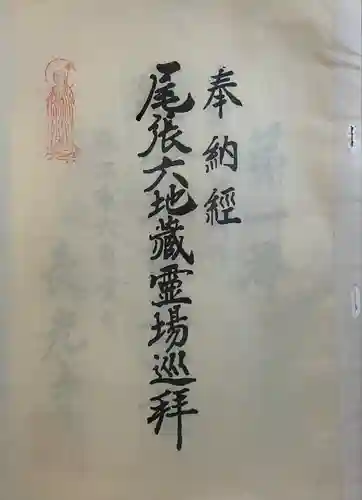 奉納經
尾張六地藏靈場巡拜